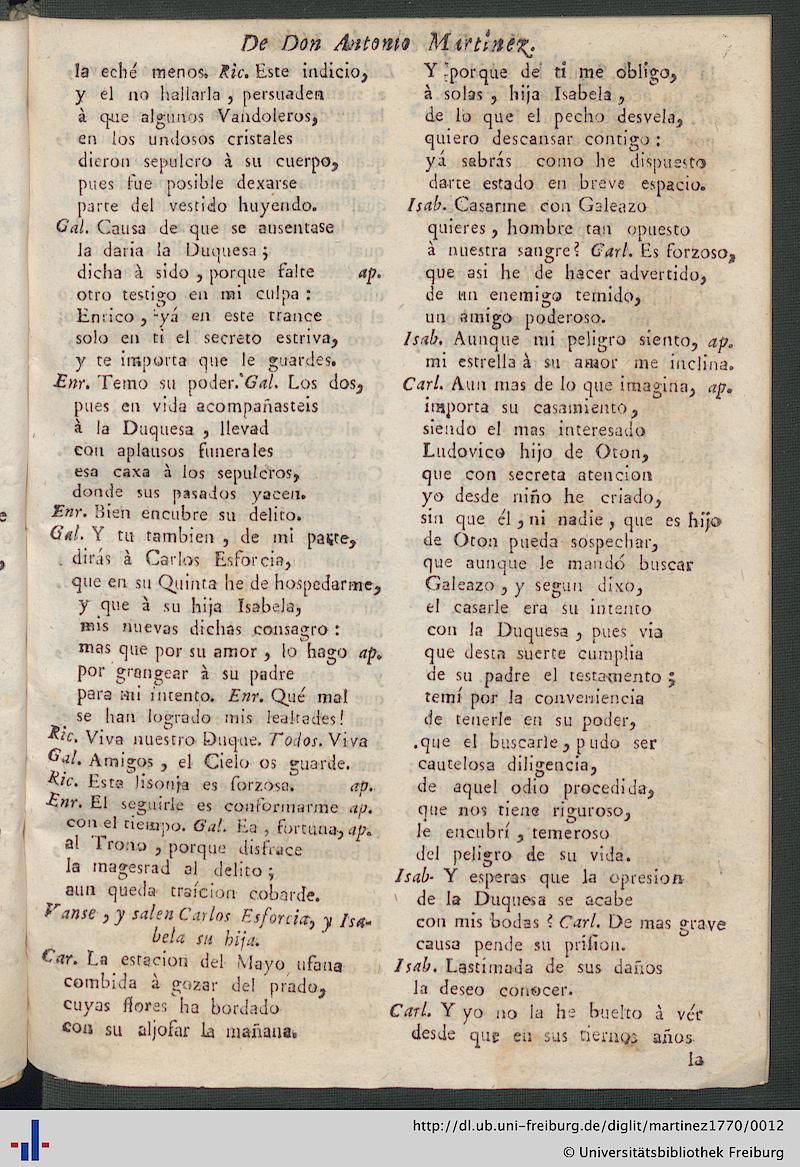 De Don Antonio Martinez.
la eché menos. Ric. Este indicio,
y el no hallarla, persuaden
à que algunos Vandoleros,
en los undosos cristales
dieron sepulcro à su cuerpo,
pues fue posible dexarse
parte del vestido huyendo.
Gal. Causa de que se ausentase
la daria la Duquesa;
dicha à sido, porque falte ap.
otro testigo en mi culpa:
Enrico, yá en este trance
solo en ti el secreto estriva,
y te importa que le guardes.
Enr. Temo su poder. Gal. Los dos,
pues en vida acompañasteis
à la Duquesa, llevad
con aplausos funerales
esa caxa à los sepulcros,
donde sus pasados yacen.
Enr. Bien encubre su delito.
Gal. Y tu tambien, de mi parte,
dirás à Carlos Esforcia,
que en su Quinta he de hospedarme,
y que à su hija Isabela,
mis nuevas dichas consagro:
mas que por su amor, lo hago ap.
por grangear à su padre
para mi intento. Enr. Qué mal
se han logrado mis lealtades!
Ric. Viva nuestro Duque. Todos. Viva
Gal. Amigos, el Cielo os guarde.
Ric. Esta lisonja es forzosa. ap.
Enr. El seguirle es conformarme ap.
con el tiempo. Gal. Ea, fortuna, ap.
al Trono, porque disfrace
la magesrad al delito;
aun queda traícion cobarde.
Vanse, y salen Carlos Esforcia, y Isa-
bela su hija.
Car. La estacion del Mayo ufana
combida à gozar del prado,
cuyas flores ha bordado
con su aljofar la mañana.
Y porque de ti me obligo,
à solas, hija Isabela,
de lo que el pecho desvela,
quiero descansar contigo:
yá sabrás como he dispuesto
darte estado en breve espacio.
Isab. Casarme con Galeazo
quieres, hombre tan opuesto
à nuestra sangre? Carl. Es forzoso,
que asi he de hacer advertido,
de un enemigo temido,
un amigo poderoso.
Isab. Aunque mi peligro siento, ap.
mi estrella à su amor me inclina.
Carl. Aun mas de lo que imagina, ap.
importa su casamiento,
siendo el mas interesado
Ludovico hijo de Oton,
que con secreta atencion
yo desde niño he criado,
sin que él, ni nadie, que es hijo
de Oton pueda sospechar,
que aunque le mandó buscar
Galeazo, y segun dixo,
el casarle era su intento
con la Duquesa, pues via
que desta suerte cumplia
de su padre el testamento;
temí por la conveniencia
de tenerle en su poder,
que el buscarle, pudo ser
cautelosa diligencia,
de aquel odio procedida,
que nos tiene riguroso,
le encubrí, temeroso
del peligro de su vida.
Isab. Y esperas que la opresion
de la Duquesa se acabe
con mis bodas? Carl. De mas grave
causa pende su prision.
Isab. Lastimada de sus daños
la deseo conocer.
Carl. Y yo no la he buelto à vér
desde que en sus tiernos años
la
http://dl.ub.uni-freiburg.de/diglit/martinez1770/0012
© Universitätsbibliothek Freiburg